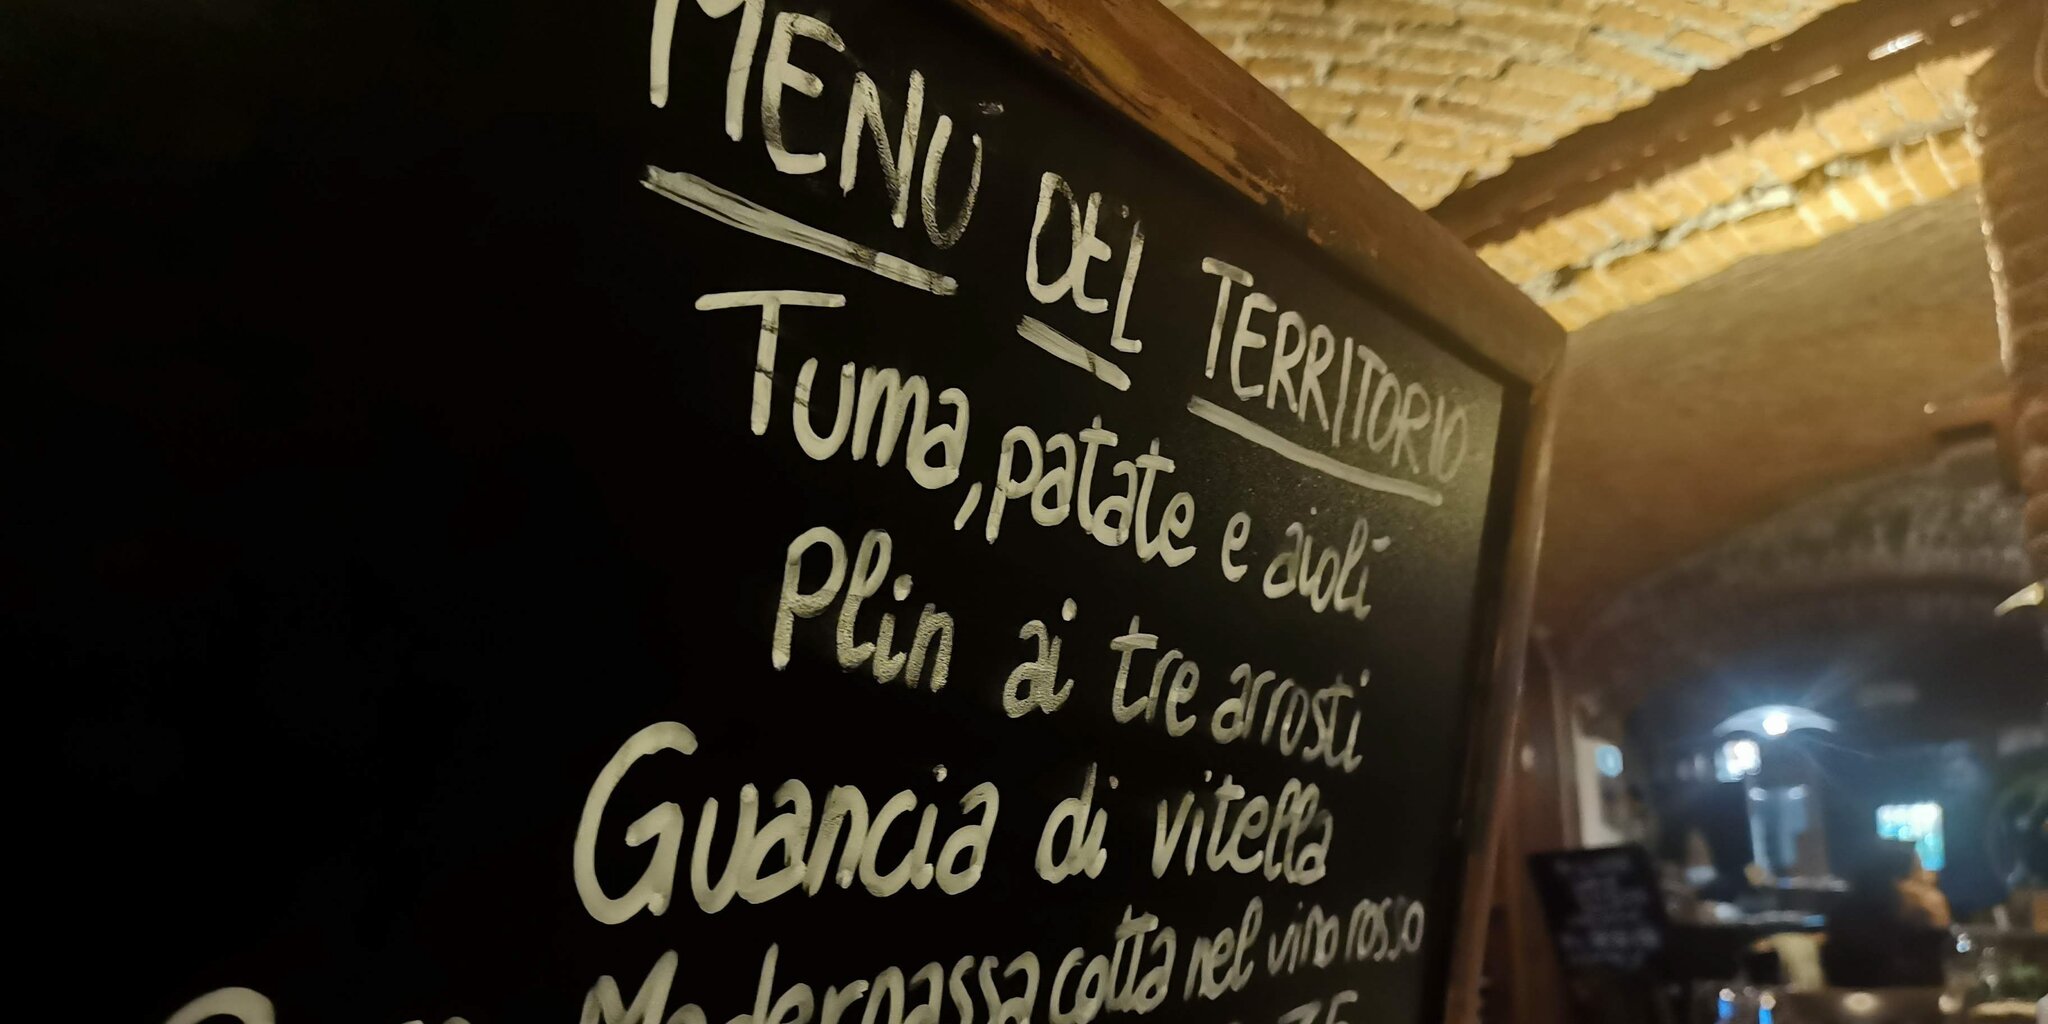 MENÚ DEL TERRITORIO
Tuma, patate e aioli
Plin ai tre arrosti
Guancia di vitella
Madernassa cotta nel vino rosso